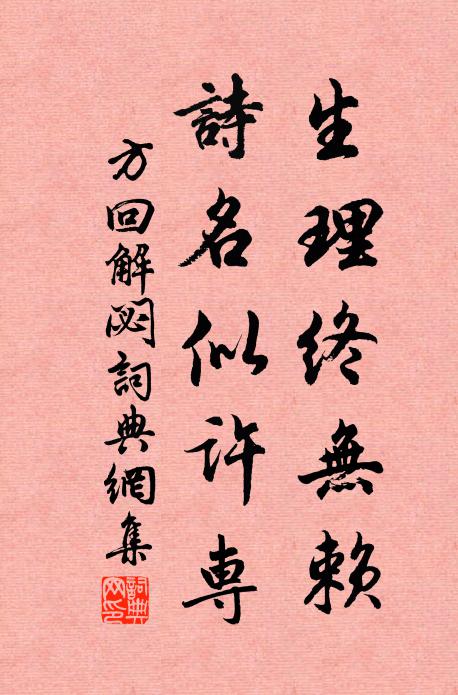 生理終無賴
詩名似許専
方回解悶詞典網集
詞典網印